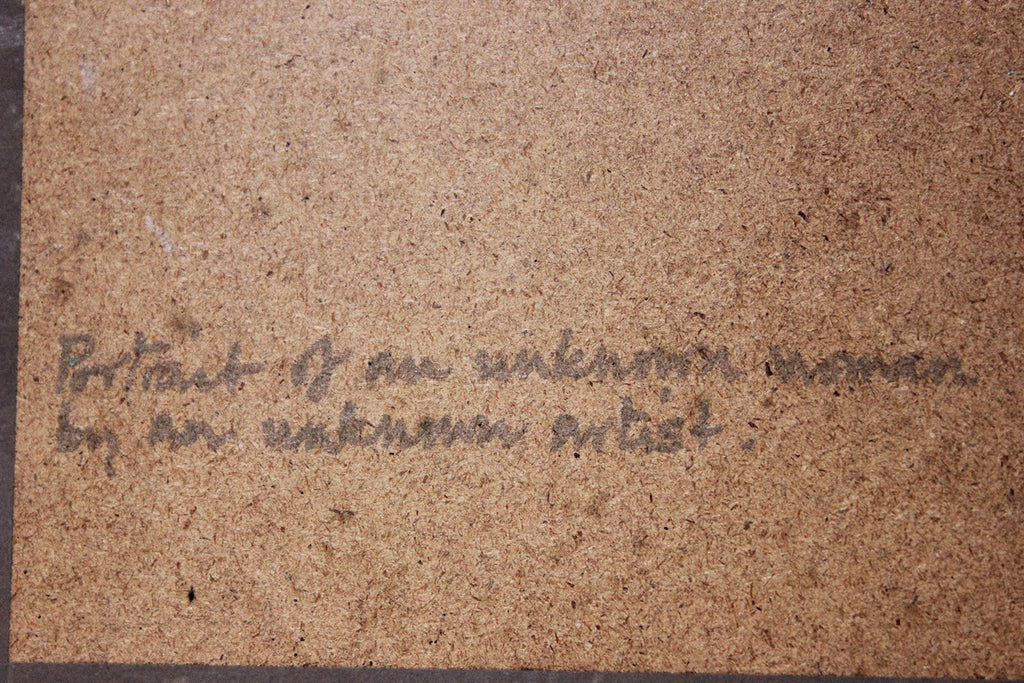 Portrait of an unknown woman
by an unknown artist.